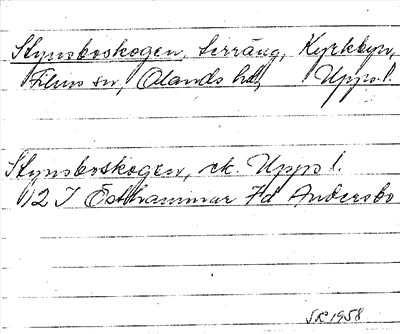 Slynsboskogen, terräng, Kyrkbyn,
Films sn, Olands hd, Upps. l.
Slynsboskogen, ek. Upps l.
12 I Östhammar 7d Andersbo
SR 1958